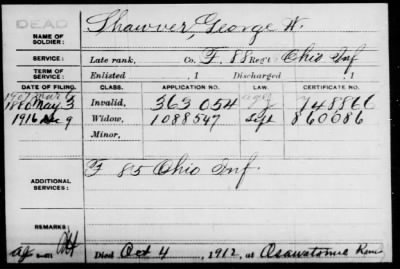 DEAD
NAME OF SOLDIER: Shawver, George W.
SERVICE: Late rank, Co. F. 88 Reg't Ohio Inf
TERM OF SERVICE: Enlisted , 1 Discharged , 1
DATE OF FILING. CLASS. APPLICATION NO. LAW. CERTIFICATE NO.
1880 May 3 Invalid, 363 054 748866
1916 Dec 9 Widow, 1088547 Sept 860086
Minor,
ADDITIONAL SERVICES: F 85 Ohio Inf.
REMARKS:
Died Oct 4 , 1912, at Osawatomie Kans